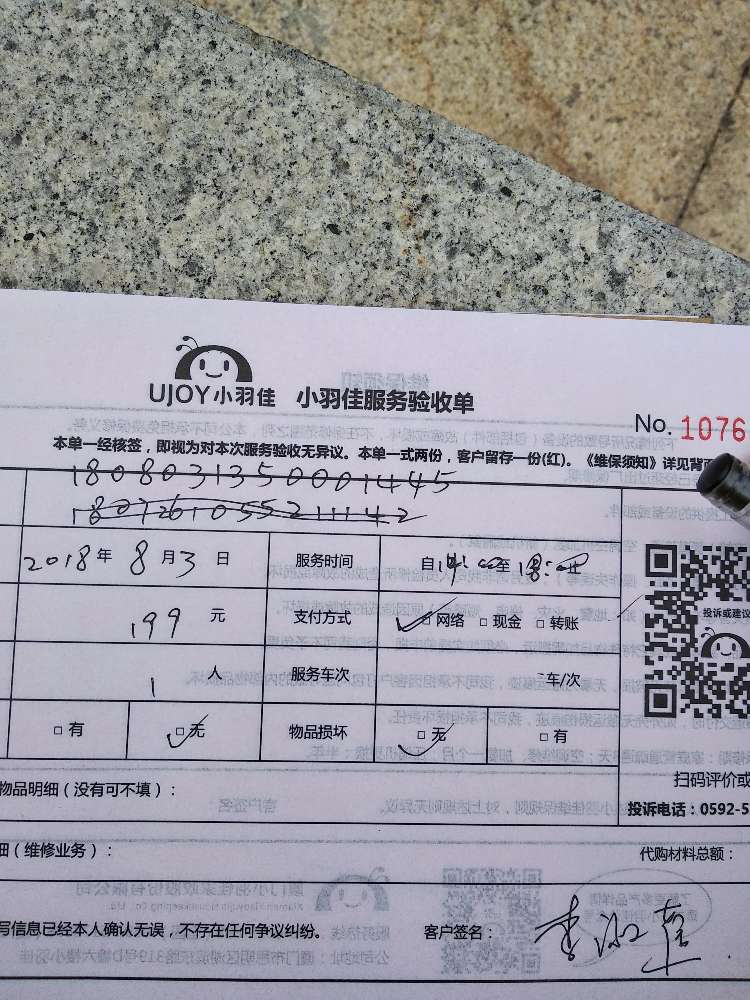 UJOY小羽佳 小羽佳服务验收单
No. 1076
本单一经核签，即视为对本次服务验收无异议。本单一式两份，客户留存一份(红)。《维保须知》详见背
1808031350001445
1807261055211142
2018年8月3日 服务时间 自14:00至18:
199元 支付方式 □网络 □现金 □转账
1人 服务车次 车/次
□有 □无 物品损坏 □无 □有
投诉或建议
扫码评价或
物品明细（没有可不填）：
投诉电话：0592-5
细（维修业务）： 代购材料总额：
写信息已经本人确认无误，不存在任何争议纠纷。 客户签名：